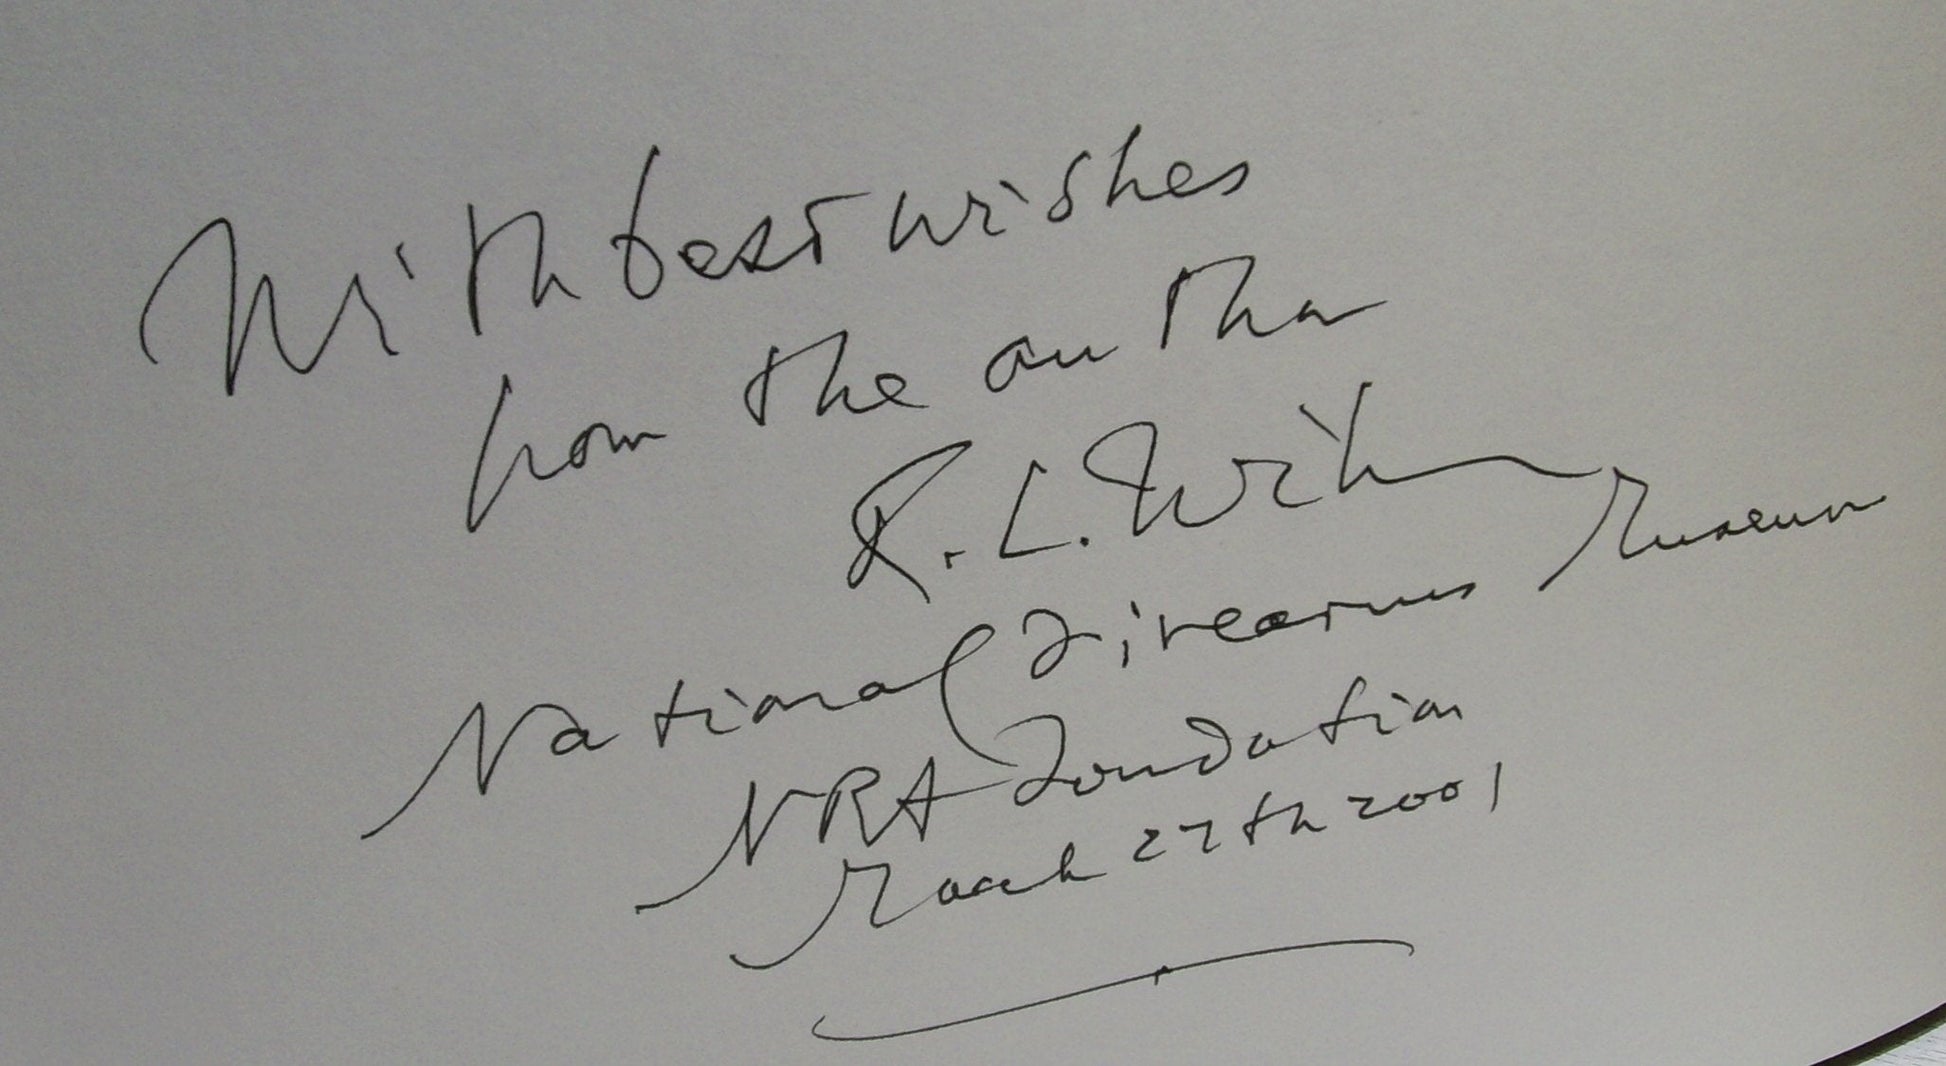 With best wishes
from the author
R. L. Wilson
National Firearms Museum
NRA Foundation
March 27th 2001